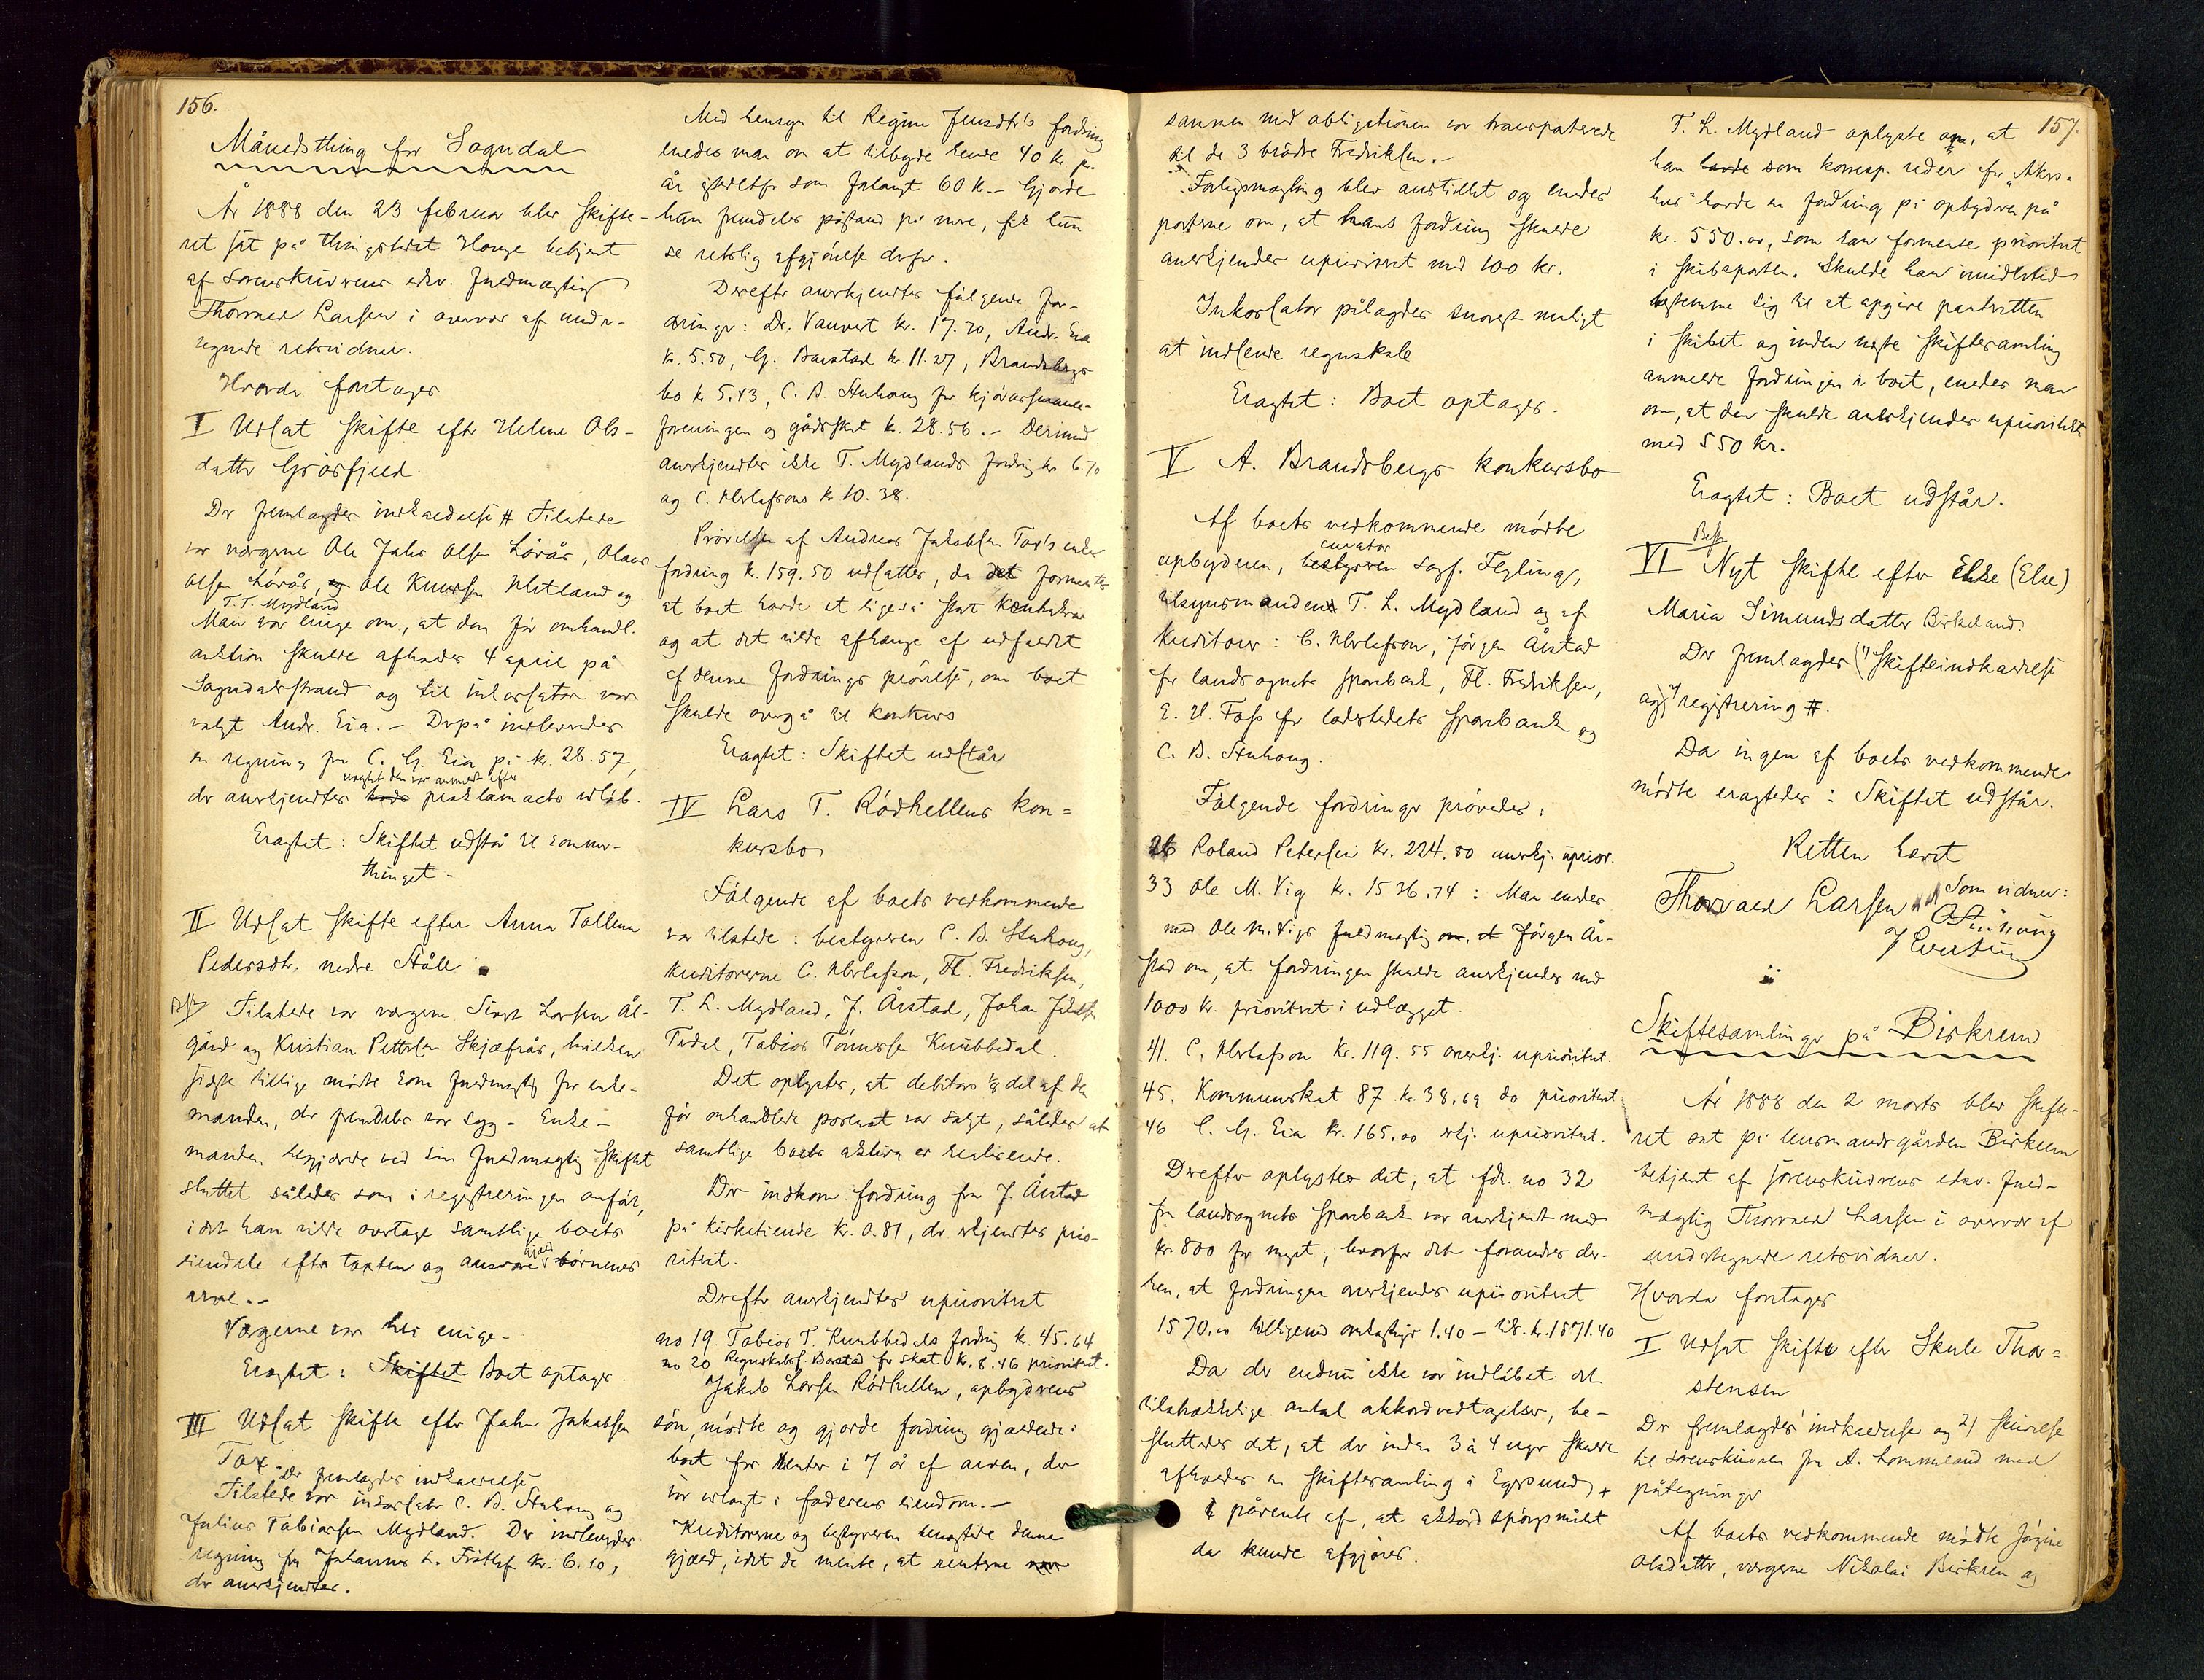 156.
Månedsthing for Sogndal
År 1888 den 23 februar blev skifte-
ret sat på thingstedet Hauge betjent
af sorenskriverens edsv. fuldmægtig
Thorvald Larsen i overvær af under-
tegnede retsvidner.
Hvorda foretages
I Udsat skifte efter Helene Ols-
datter Grøsfjeld.
Der fremlagdes indkaldelse # Tilstede
var værgerne Ole Jakob Olsen Låvås, Olaus
Olsen Låvås, og Ole Knudsen Mitland og
T. T. Mydland
Man var enige om, at den før omhandl.
auktion skulde afholdes 4 april på
Sogndalsstrand og til inkassator var
valgt Andr. Eia. – Derpå indleveredes
en regning fra C. G. Eia på kr. 28.57,
uagtet den var anmeldt efter
der anerkjendtes proklamaets udløb.
Eragtet: Skiftet udstår til sommer-
thinget –
II Udsat skifte efter Anna Tallena
Pedersdtr. nedre Ståle
Tilstede var værgerne Sivert Larsen Ål-
gård og Kristian Pettersen Skjæfrås, hvilken
sidste tillige mødte som fuldmægtig for enke-
manden, der fremdeles var syg – Enke-
manden begjærede ved sin fuldmægtig skiftet
sluttet således som i registreringen anført,
idet han vilde overtage samtlige boets
eiendele efter taxten og ansvare gjæld børnenes
arve. –
Værgerne var heri enige –
Eragtet: Skiftet Boet optages.
III Udsat skifte efter Jahn Jakobsen
Tox. – Der fremlagdes indkaldelse
Tilstede var inkassator C. B. Stuhaug og
Julius Tobiassen Mydland. Der indleveredes
regning fra Johannes L. Fidtlof kr. 6.10,
der anerkjendtes.
Med hensyn til Regine Jensdtr's fordring
enedes man om at tilbyde hende 40 kr. pr.
år istedetfor som forlangt 60 k. – Gjorde
hun fremdeles påstand på mere, fik hun
se retslig afgjørelse derfor.
Derefter anerkjendtes følgende for-
dringer: Dr. Vauvert kr. 17.20, Andr. Eia
kr. 5.50, G. Barstad kr. 11.27, Brandsbergs
bo kr 5.43, C. B. Stuhaug for kjørersmanns-
foreningen og gårdskat kr. 28.56. – Derimod
anerkjendtes ikke T. Mydlands fordring kr 6.70
og C. Olerlafsons kr 10.38.
Prøvelsen af Andreas Jakobsen Tox's enkes
fordring kr. 159.50 udsattes, da det formentes
at boet havde et ligeså stort kontrakrav
og at det vilde afhænge af udfaldet
af denne fordrings prøvelse, om boet
skulde overgå til konkurs
Eragtet: Skiftet udstår
IV Lars T. Rødhellens kon=
kursbo
Følgende af boets vedkommende
var tilstede: bestyreren C. B. Stuhaug,
kreditorerne C. Olerlafson, Fl. Fredriksen,
T. L. Mydland, J. Årstad, Johan Jakobsen
Tedal, Tobias Tønnessen Knubbedal.
Det oplystes, at debitors 1/4 del af den
før omhandlede porlast var solgt, således at
samtlige boets aktiva er realiserede.
Der indkom fordring fra J. Årstad
på kirketiende kr. 0.81, der erkjendtes prio-
riteret.
Derefter anerkjendtes uprioriteret
no 19. Tobias T. Knubbedals fordring kr. 45.64
no 20 Regnskabsf. Barstad for skat kr. 8.46 prioriteret.
Jakob Larsen Rødhellen, opbyderens
søn, mødte og gjorde fordring gjældende:
boet for renter i 7 år af arven, der
var udlagt i faderens eiendom. –
Kreditorerne og bestyreren benægtede denne
gjæld, idet de mente, at renterne
157.
sammen med obligationen var transporterede
til de 3 brødre Fredriksen. –
Forligsmægling blev anstillet og enedes
parterne om, at hans fordring skulde
anerkjendes uprioriteret med 100 kr.
Inkassator pålagdes snarest muligt
at indsende regnskab
Eragtet: Boet optages.
V A. Brandsbergs konkursbo
Af boets vedkommende mødte
curator
opbyderen, bestyreren sagf. Feyling,
tilsynsmanden T. L. Mydland og af
kreditorer: C. Olerlafson, Jørgen Årstad
for landsognets sparebank, Fl. Fredriksen,
E. H. Foss for ladestedets sparebank og
C. B. Stuhaug.
Følgende fordringer prøvedes:
26 Roland Petersen kr. 224.80 anerkj. uprior.
33 Ole M. Vig kr. 1536.74: Man enedes
med Ole M. Vigs fuldmægtig om, at Jørgen År-
stad om, at fordringen skulde anerkjendes med
1000 kr. prioriteret i udlægget.
41. C. Olerlafson kr. 119.55 anerkj. uprioriteret.
45. Kommuneskat 87 kr. 38.69 do prioriteret
46 C. G. Eia kr. 165.00 erkj. uprioriteret.
Derefter oplystes det, at fdr. no 32
fra landsognets sparebank var anerkjent med
kr. 800 for meget, hvorfor det forandres der-
hen, at fordringen anerkjendes uprioriteret
1570.00 tilligemed omkostninger 1.40 – tils. kr. 1571.40
Da der endnu ikke var indløbet det
tilstrækkelige antal akkordvedtagelser, be-
sluttedes det, at der inden 3 à 4 uger skulde
afholdes en skiftesamling i Egersund +
i påvente af, at akkordspørgsmålet
da kunde afgjøres.
T. L. Mydland oplyste om, at
han havde som korresp. reder for "Akers-
hus" havde en fordring på opbyderen på
kr. 550.00, som han formente prioriteret
i skibsparten. Skulde han imidlertid
bestemme sig til at opgive panteretten
i skibet og inden næste skiftesamling
anmelde fordringen i boet, enedes man
om, at den skulde anerkjendes uprioriteret
med 550 kr.
Eragtet: Boet udstår.
VI Nyt skifte efter Else (Elie)
Maria Simundsdatter Birkeland.
Der fremlagdes 1) skifteindkaldelse
og 2) registrering #.
Da ingen af boets vedkommende
mødte eragtedes: Skiftet udstår.
Retten hævet
Thorvald Larsen
Som vidner:
J Evertsen
Skiftesamlinger på Birkrem
År 1888 den 2 marts blev skifte-
ret sat på lensmandsgården Birkrem
betjent af sorenskriverens edsv. fuld-
mægtig Thorvald Larsen i overvær af
undertegnede retsvidner.
Hvorda foretages
I Udsat skifte efter Skule Thor=
stensen
Der fremlagdes indkaldelse og 2) skrivelse
til sorenskriveren fra A. Lommeland med
påtegninger
Af boets vedkommende mødte Jørgine
Olsdatter, værgerne Nikolai Birkrem og